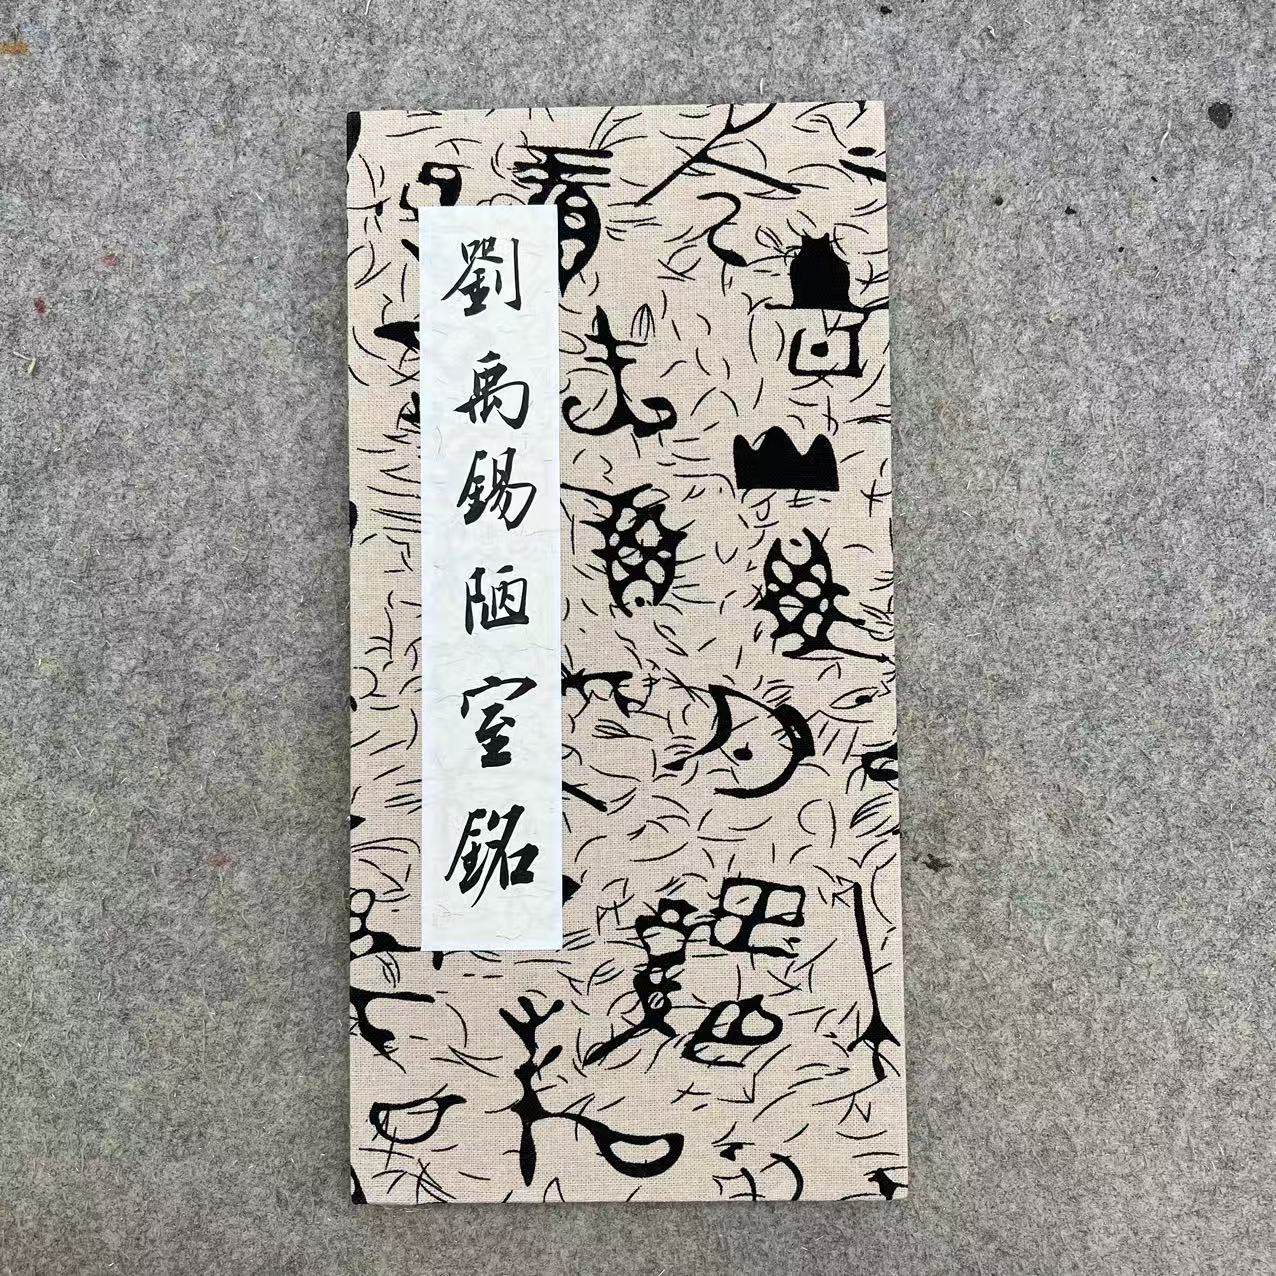 劉禹錫陋室銘